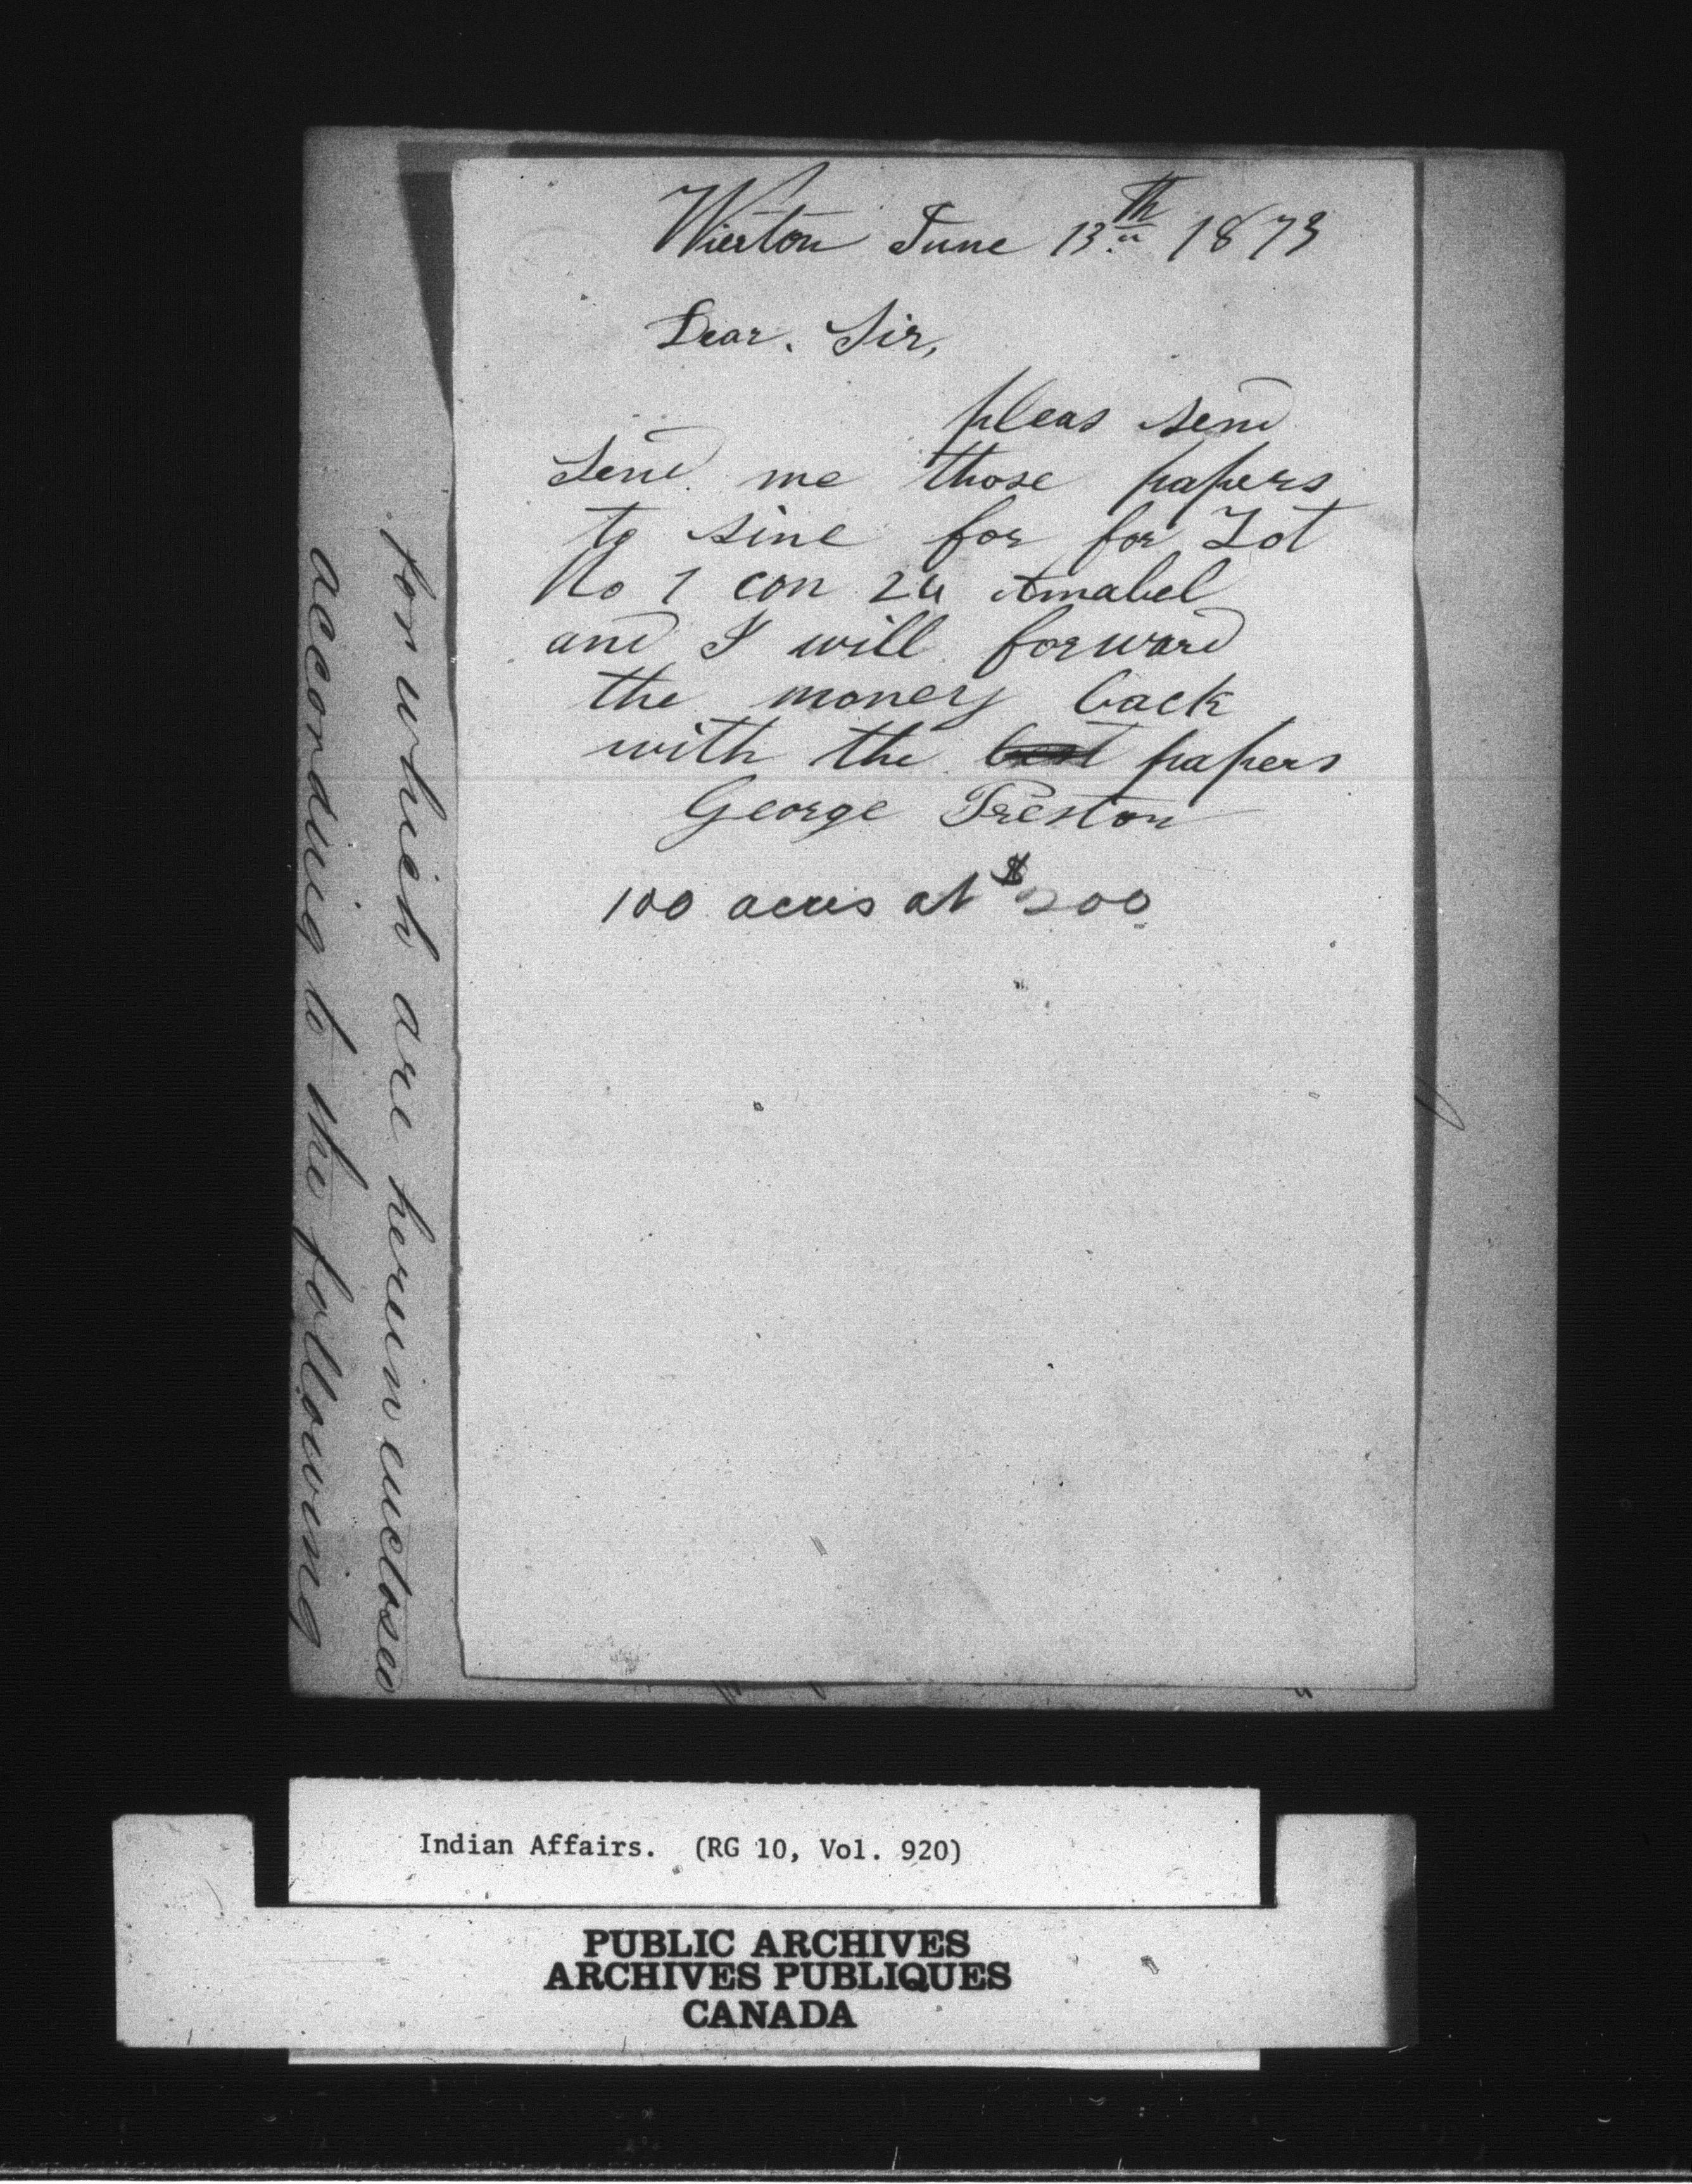 Wierton June 13th 1873
Dear. Sir,
pleas send
Send me those papers
to sine for for Lot
No 1 con 24 Amabel
and I will forward
the money back
with the papers
George Preston
100 acres at $200
for which are herein enclosed
according to the following
Indian Affairs. (RG 10, Vol. 920)
PUBLIC ARCHIVES
ARCHIVES PUBLIQUES
CANADA